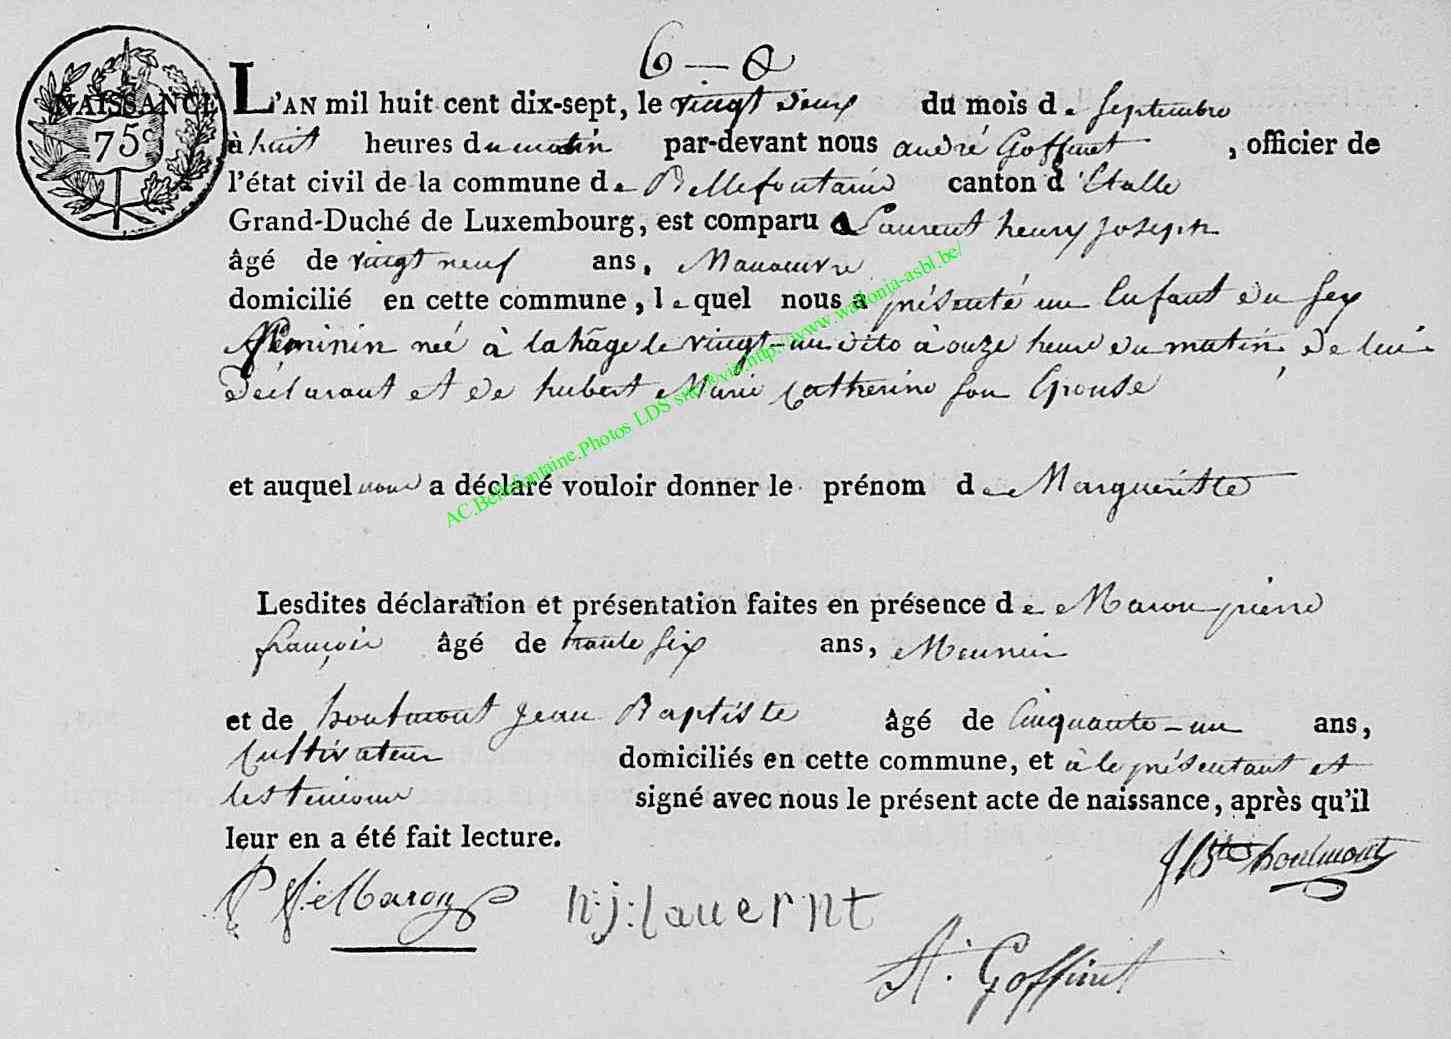 6 — a
NAISSANCE
75c
L'AN mil huit cent dix-sept, le vingt deux du mois de Septembre
à huit heures du matin par-devant nous andré Goffinet, officier de
l'état civil de la commune de Bellefontaine canton d'Etalle
Grand-Duché de Luxembourg, est comparu Laurent henry joseph
âgé de vingt neuf ans, Manoeuvre
domicilié en cette commune, lequel nous a présenté un Enfant du sex
feminin née à lahage le vingt-un dito à onze heure du matin, de lui
déclarant et de hubert Marie Catherine son Epouse
et auquel nous a déclaré vouloir donner le prénom de Margueritte
Lesdites déclaration et présentation faites en présence de Maron pierre
françois âgé de trante six ans, Meunier
et de houlmont jean Baptiste âgé de Cinquante-un ans,
Cultivateur domiciliés en cette commune, et à le présentant et
les temoins signé avec nous le présent acte de naissance, après qu'il
leur en a été fait lecture.
JBte houlmont
P f: Maron h:j:lauernt
A. Goffinet
AC.Bellefontaine.Photos LDS site ©via.https://www.wallonia-asbl.be/